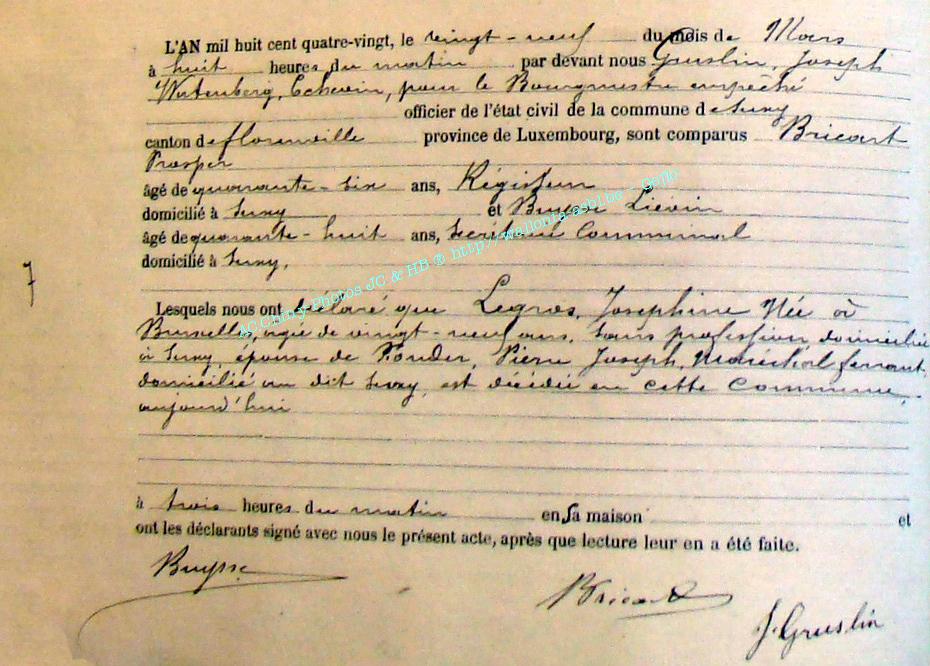 L'AN mil huit cent quatre-vingt, le vingt-neuf du mois de Mars
à huit heures du matin par devant nous Gruslin, Joseph
Echevin, pour le Bourgmestre empêché
officier de l'état civil de la commune de Suxy
canton de florenville province de Luxembourg, sont comparus Bricart
Prosper
âgé de quarante-six ans, Régisseur
domicilié à Suxy et Buysse Lievin
âgé de quarante-huit ans, Secrétaire Communal
domicilié à Suxy,
7
Lesquels nous ont déclaré que Legros, Josephine Née à
Bruxelles, agée de vingt-neuf ans, sans profession, domiciliée
à Suxy, épouse de Pierre Joseph, Maréchal ferrant,
domicilié au dit Suxy, est décédée en cette Commune,
aujourd'hui
à trois heures du matin en sa maison et
ont les déclarants signé avec nous le présent acte, après que lecture leur en a été faite.
Buysse
Bricart
J. Gruslin
AC Chiny-Photos JC & HB ® http://wallonia-asbl.be - Geflo